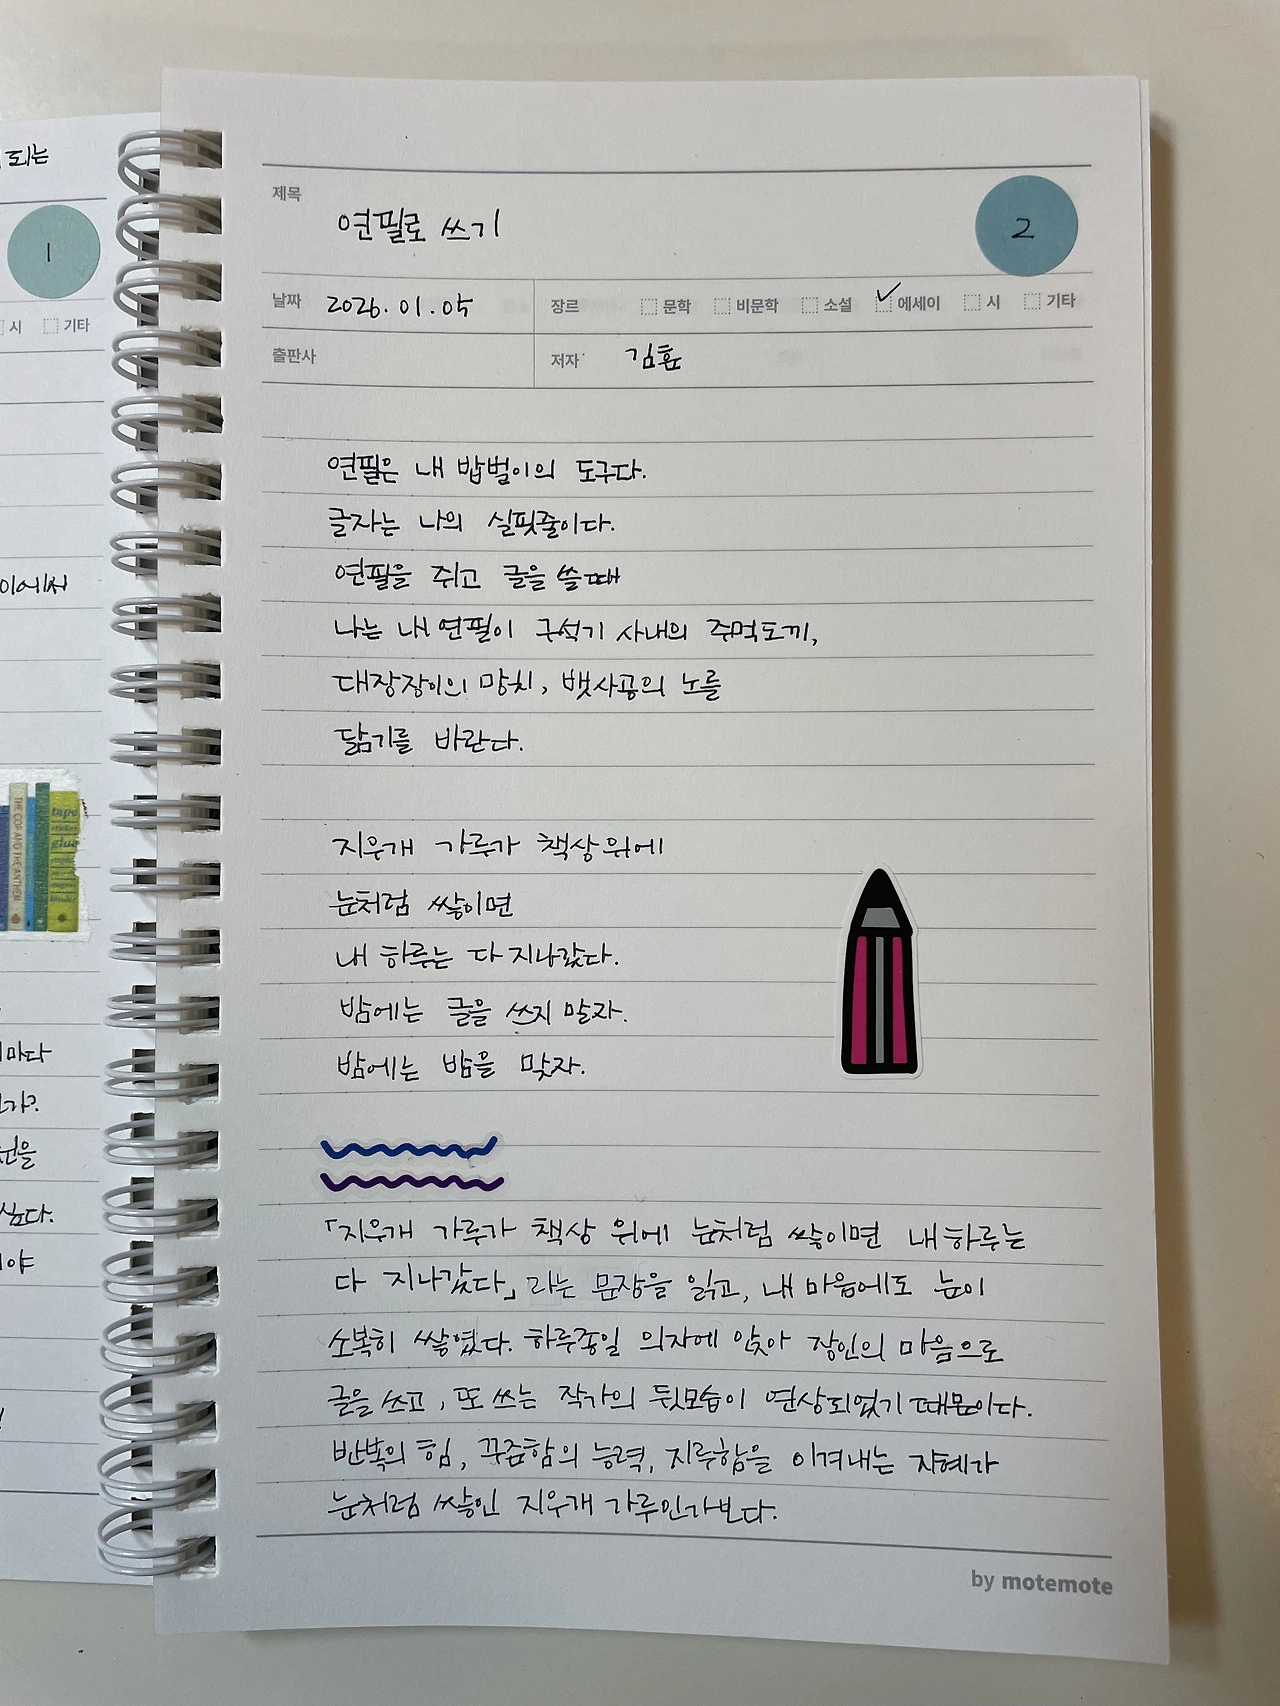 되는
1
시 기타
이에서
THE COP AND THE ANTHEM
tape
glue
마다
가?
싶다.
이야
제목
연필로 쓰기
2
날짜 2026. 01. 05 장르 문학 비문학 소설 ✓에세이 시 기타
출판사 저자 김훈
연필은 내 밥벌이의 도구다.
글자는 나의 실핏줄이다.
연필을 쥐고 글을 쓸때
나는 내 연필이 구석기 사내의 주먹도끼,
대장장이의 망치, 뱃사공의 노를
닮기를 바란다.
지우개 가루가 책상위에
눈처럼 쌓이면
내 하루는 다 지나갔다.
밤에는 글을 쓰지 말자.
밤에는 밤을 맞자.
「지우개 가루가 책상 위에 눈처럼 쌓이면 내 하루는
다 지나갔다」 라는 문장을 읽고, 내 마음에도 눈이
소복히 쌓였다. 하루종일 의자에 앉아 장인의 마음으로
글을 쓰고, 또 쓰는 작가의 뒷모습이 연상되었기 때문이다.
반복의 힘, 꾸준함의 능력, 지루함을 이겨내는 지혜가
눈처럼 쌓인 지우개 가루인가보다.
by motemote